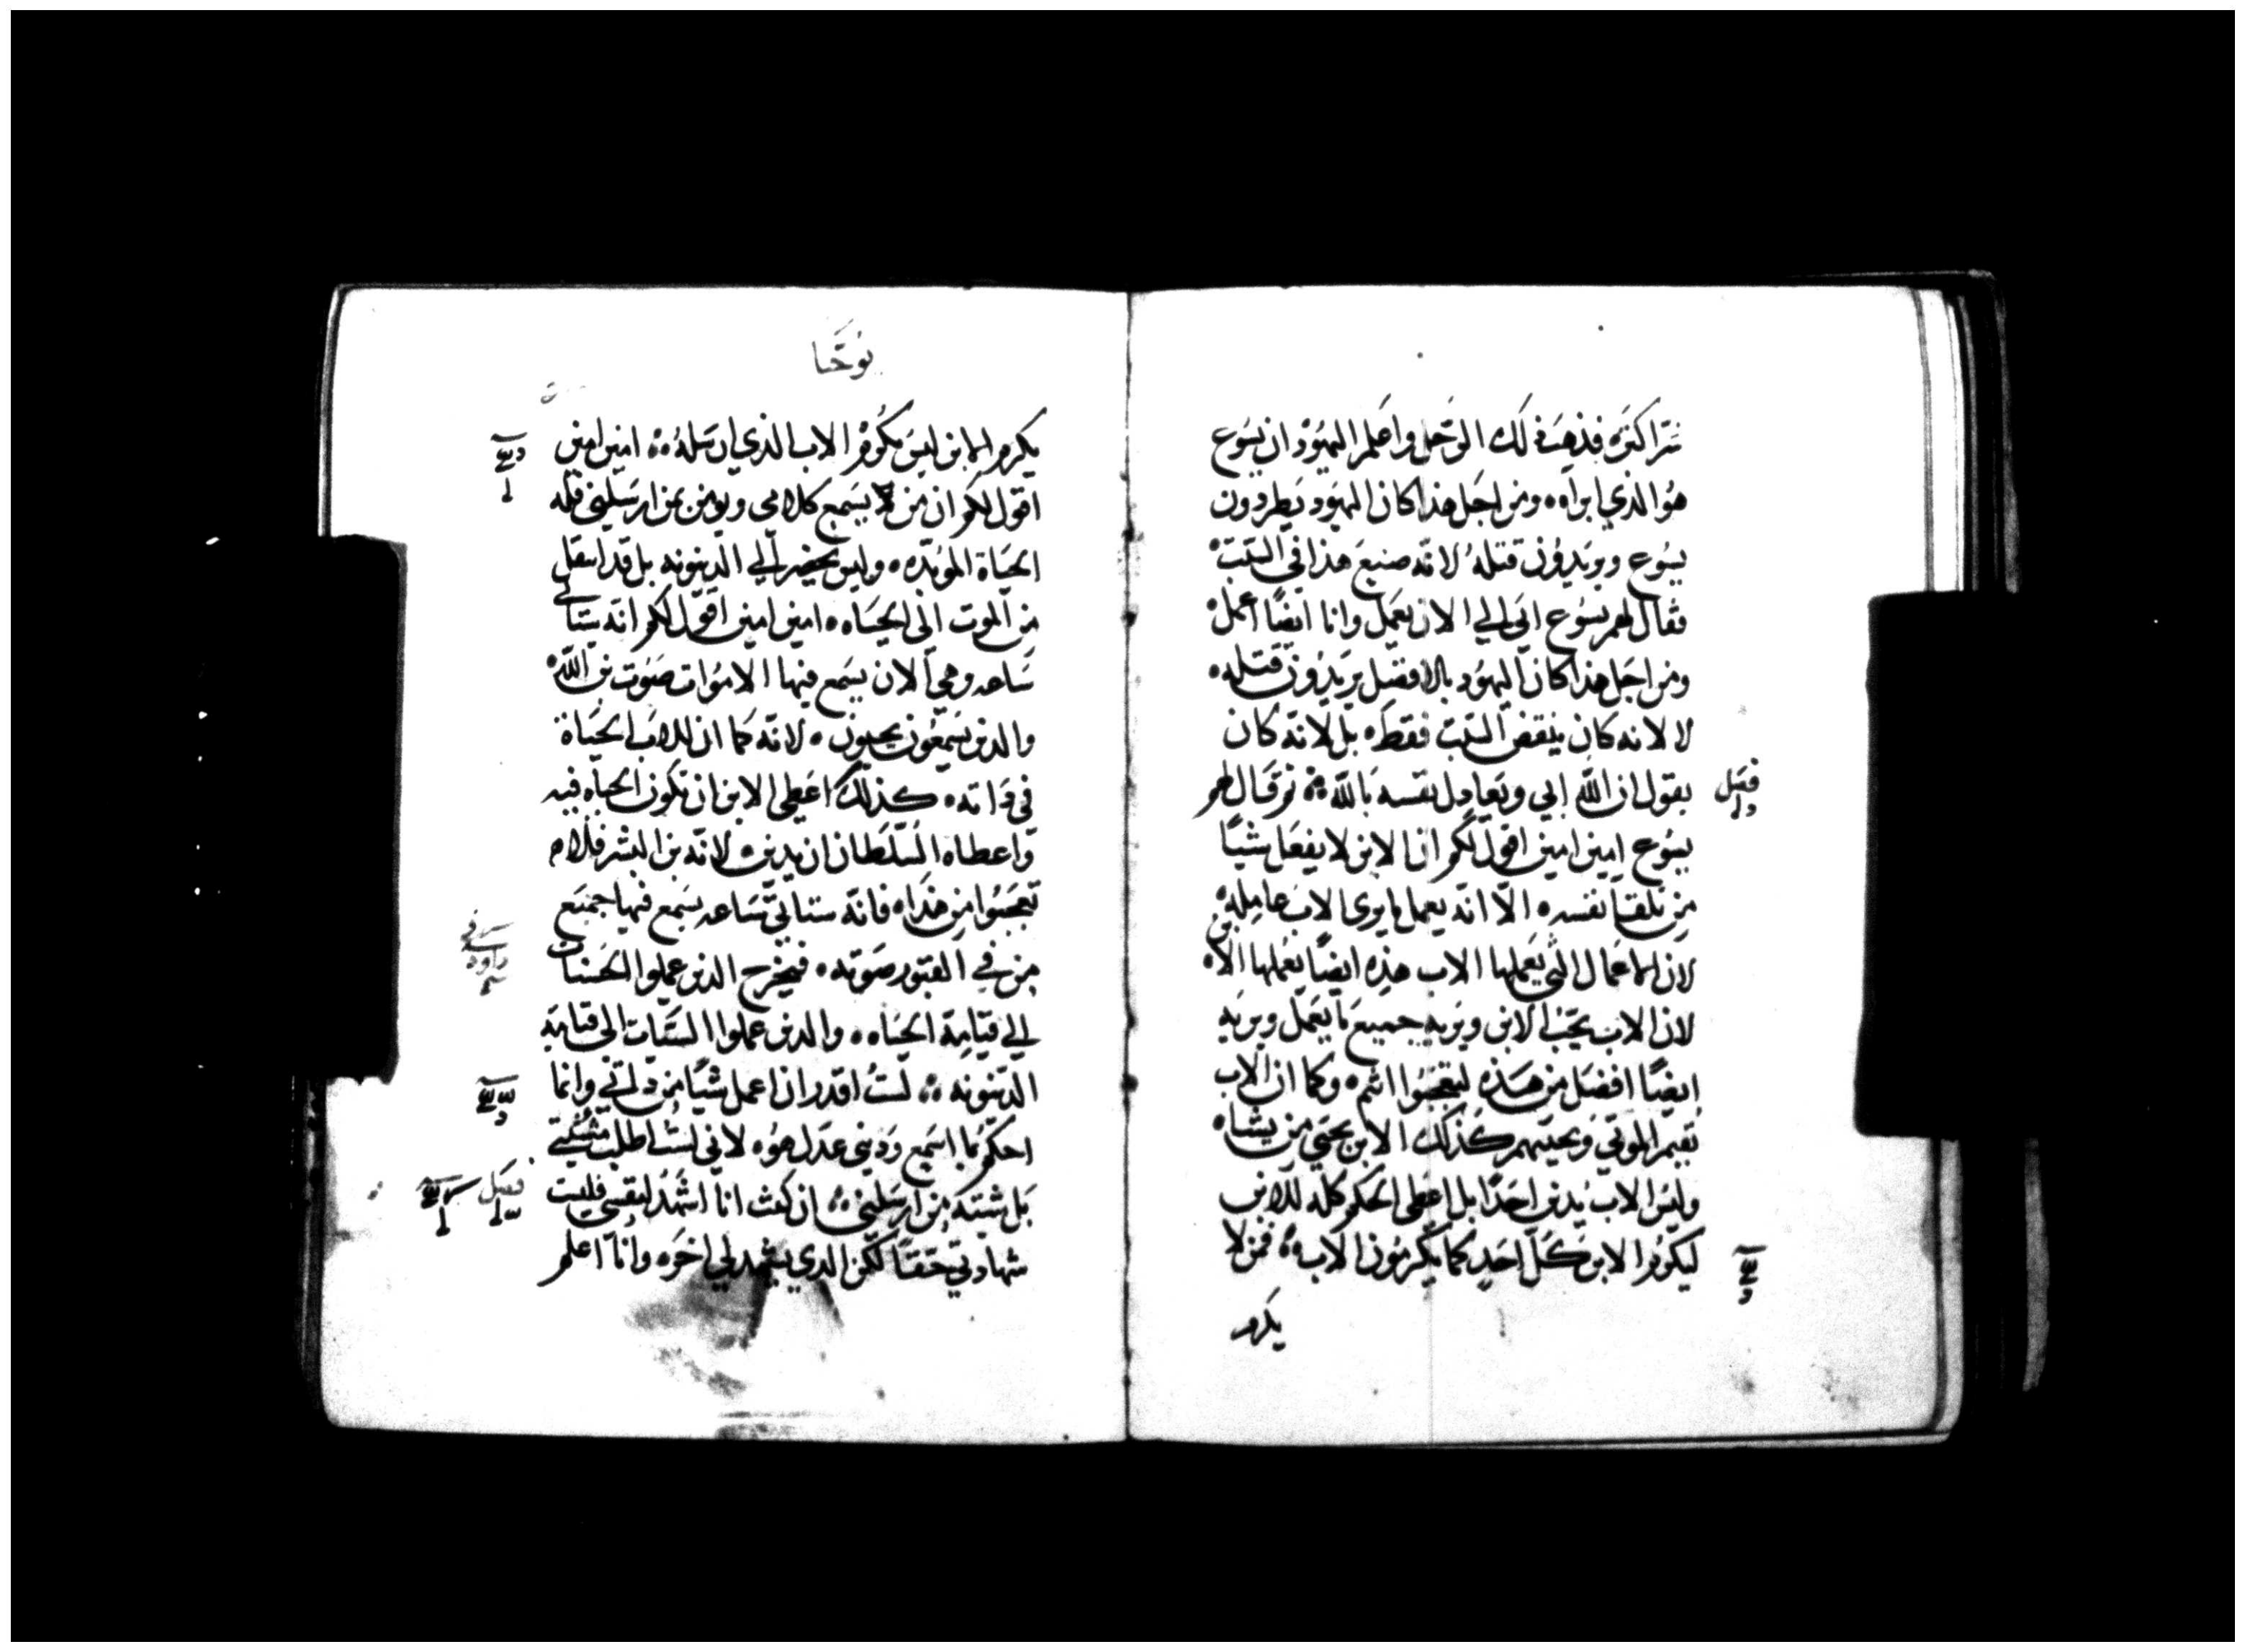 شرا كثره فذهب ذلك الرجل واعلم اليهود ان يسوع
هو الذي ابراه ومن اجل هذا كان اليهود يطردون
يسوع ويريدون قتله لانه صنع هذا في السبت
فقال لهم يسوع ابي الي الان يعمل وانا ايضا اعمل
ومن اجل هذا كان اليهود بالافضل يريدون قتله
لا لانه كان ينقض السبت فقط بل لانه كان
يقول ان الله ابي ويعادل نفسه بالله ثم قال لهم
فصل
يسوع امين امين اقول لكم ان الابن لا يفعل شيا
من تلقا نفسه الا انه يعمل ما يرى الاب عامله
لان الاعمال التي يعملها الاب هذه ايضا يعملها الابن
لان الاب يحب الابن ويريه جميع ما يعمل ويريه
ايضا افضل من هذه لتعجبوا انتم وكما ان الاب
يقيم الموتي ويحييهم كذلك الابن يحيي من يشاه
وليس الاب يدين احدا بل اعطى الحكم كله للابن
ليكرموا الابن كل احد كما يكرمون الاب فمن لا
يكرم
يوحنا
يكرم الابن ليس يكرم الاب الذي ارسله امين امين
اقول لكم ان من يسمع كلامي ويومن بمن ارسلني فله
الحياة الموبده وليس يحضر الي الدينونه بل قد انتقل
من الموت الى الحياه امين امين اقول لكم انه ستاتي
ساعه وهي الان يسمع فيها الاموات صوت بن الله
والذين يسمعون يحيون لانه كما ان للاب الحياة
في ذاته كذلك اعطى الابن ان تكون الحياه فيه
واعطاه السلطان ان يدين لانه بن البشر فلا
تعجبوا من هذا فانه ستاتي ساعه يسمع فيها جميع
من في القبور صوته فيخرج الذين عملوا الحسنات
الي قيامة الحياه والذين عملوا السيات الى قيامة
الدينونه لست اقدر ان اعمل شيا من ذاتي وانما
احكم بما اسمع وديني عدل هو لاني لست اطلب مشيتي
بل مشية من ارسلني ان كنت انا اشهد لنفسي فليست
فصل
شهادتي حقا لكن الذي يشهد لي اخر وانا اعلم